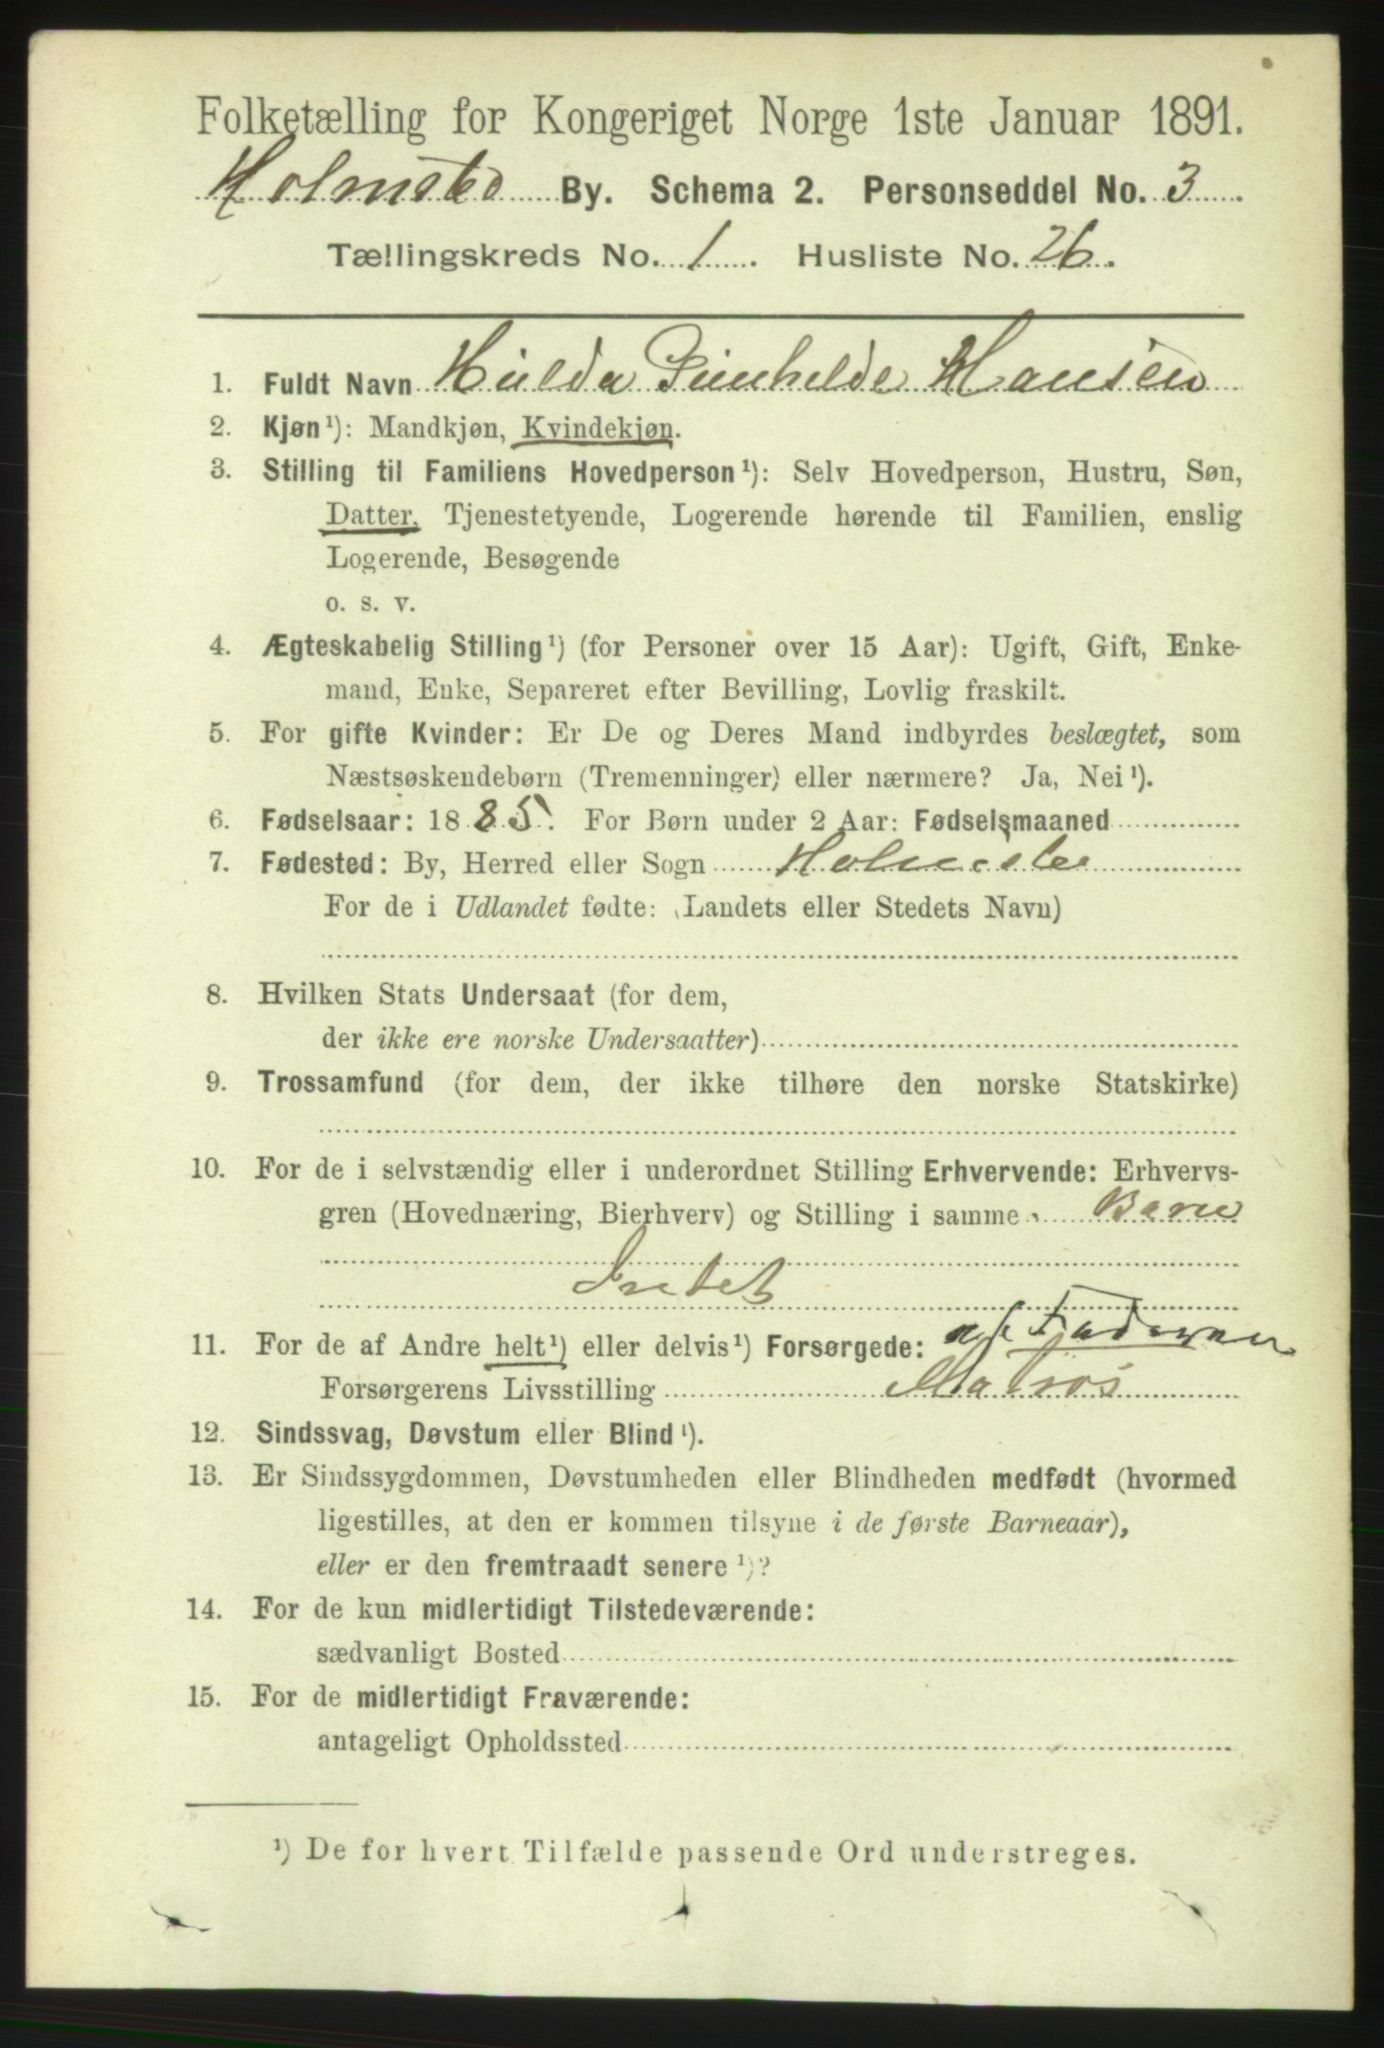 Folketælling for Kongeriget Norge 1ste Januar 1891.
Holmsbo By. Schema 2. Personseddel No. 3
Tællingskreds No. 1. Husliste No. 26.
1. Fuldt Navn Hulda Hansen
2. Kjøn ¹): Mandkjøn, Kvindekjøn.
3. Stilling til Familiens Hovedperson ¹): Selv Hovedperson, Hustru, Søn,
Datter, Tjenestetyende, Logerende hørende til Familien, enslig
Logerende, Besøgende
o. s. v.
4. Ægteskabelig Stilling ¹) (for Personer over 15 Aar): Ugift, Gift, Enke-
mand, Enke, Separeret efter Bevilling, Lovlig fraskilt.
5. For gifte Kvinder: Er De og Deres Mand indbyrdes beslægtet, som
Næstsøskendebørn (Tremenninger) eller nærmere? Ja, Nei ¹).
6. Fødselsaar: 1885. For Børn under 2 Aar: Fødselsmaaned
7. Fødested: By, Herred eller Sogn Holmsbo
For de i Udlandet fødte: (Landets eller Stedets Navn)
8. Hvilken Stats Undersaat (for dem,
der ikke ere norske Undersaatter)
9. Trossamfund (for dem, der ikke tilhøre den norske Statskirke)
10. For de i selvstændig eller i underordnet Stilling Erhvervende: Erhvervs-
gren (Hovednæring, Bierhverv) og Stilling i samme. Barn
Intet
11. For de af Andre helt ¹) eller delvis ¹) Forsørgede: af Faderen
Forsørgerens Livsstilling Matros
12. Sindssvag, Døvstum eller Blind ¹).
13. Er Sindssygdommen, Døvstumheden eller Blindheden medfødt (hvormed
ligestilles, at den er kommen tilsyne i de første Barneaar),
eller er den fremtraadt senere ¹)?
14. For de kun midlertidigt Tilstedeværende:
sædvanligt Bosted
15. For de midlertidigt Fraværende:
antageligt Opholdssted
¹) De for hvert Tilfælde passende Ord understreges.